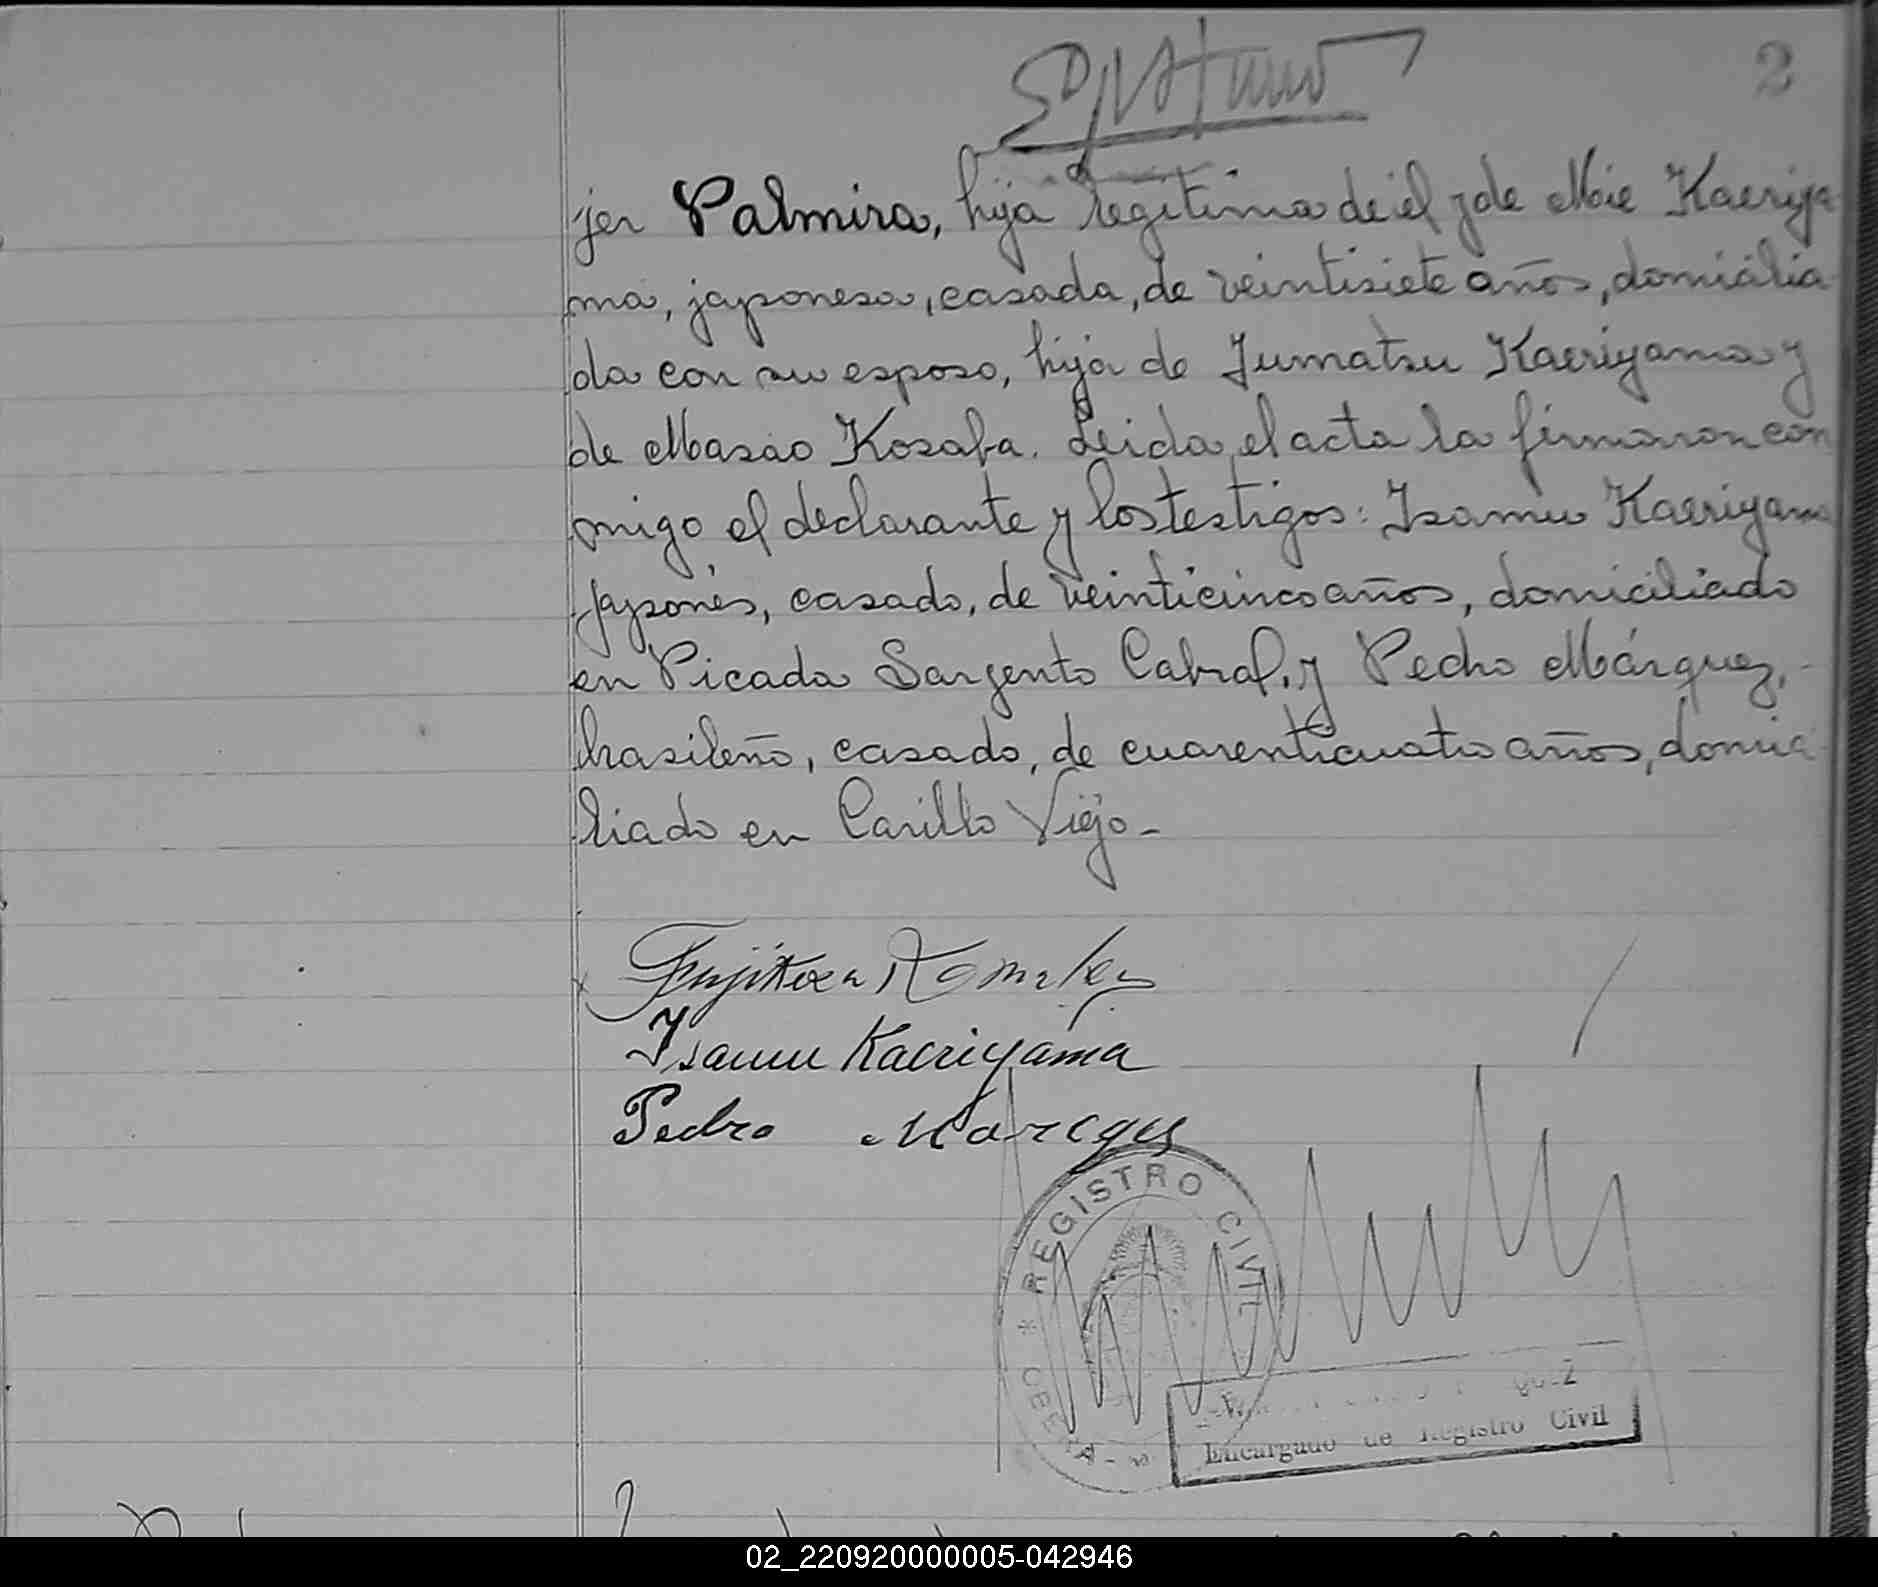 2
jer Palmira, hija legitima de él y de Mie Kaeriya
ma, japonesa, casada, de veintisiete años, domicilia
da con su esposo, hija de Jumatsu Kaeriyama y
de Masao Kosaka. Leida el acta la firmaron con
migo el declarante y los testigos: Isamu Kaeriyama
japonés, casado, de veinticinco años, domiciliado
en Picada Sargento Cabral, y Pedro Márquez,
brasileño, casado, de cuarenticuatro años, domici
liado en Cerillo Viejo-
Isamu Kaeriyama
Pedro
REGISTRO CIVIL
Encargado de Registro Civil
02_220920000005-042946